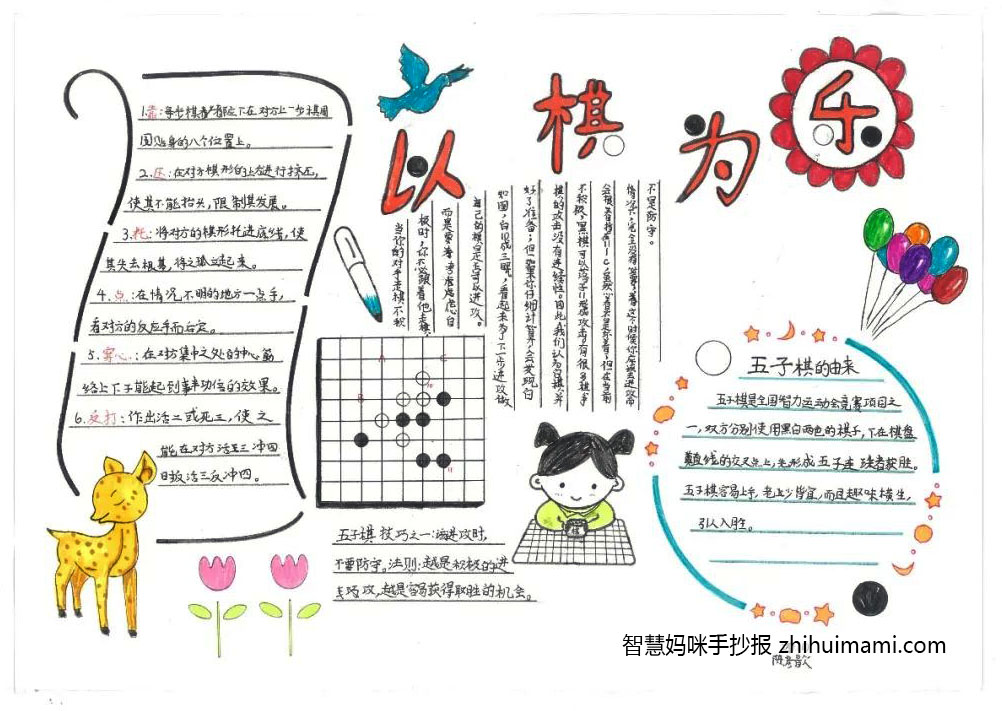 以棋为乐
1.靠:每步棋着都应下在对方上一步棋周
围贴身的八个位置上。
2.压:在对方棋形的上方进行挤压,
使其不能抬头,限制其发展。
3.托:将对方的棋形托进底线,使
其失去根基,
4.点:在情况不明的地方一点手,
看对方的反应手而后定。
5.穿心:在对方集中之处的中心筋
络上下子能起到事半功倍的效果。
6.反打:作出活二或死三,使之
能在对方活三冲四
时
活三反冲四。
当你的对手走棋不积
极时,你不必跟着他走棋,
而是要着
考虑
自
自己的棋是否可以进攻。
如图,白10成三
,看起来为了下一步进攻做
好了准备;但
如果你仔细计算
会发现白
棋的攻击没有连续性。因此我们认为白棋
并
不积极,黑棋可以
11
攻击,有很多棋手
会
11
C,虽然看
但在当前
情况下,完全没有必要,着
这个时候你应该是进攻而
不是防守。
A
C
B
10
11
五子棋技巧之一:该进攻时,
不要防守,法则:越是积极的进
攻,越是容易获得取胜的机会。
五子棋的由来
五子棋是全国智力运动会竞赛项目之
一,双方分别使用黑白两色的棋子,下在棋盘
直线的交叉点上,先形成五子连珠者获胜。
五子棋容易上手,老少皆宜,而且趣味横生,
引人入胜。
智慧妈咪手抄报 zhihuimami.com